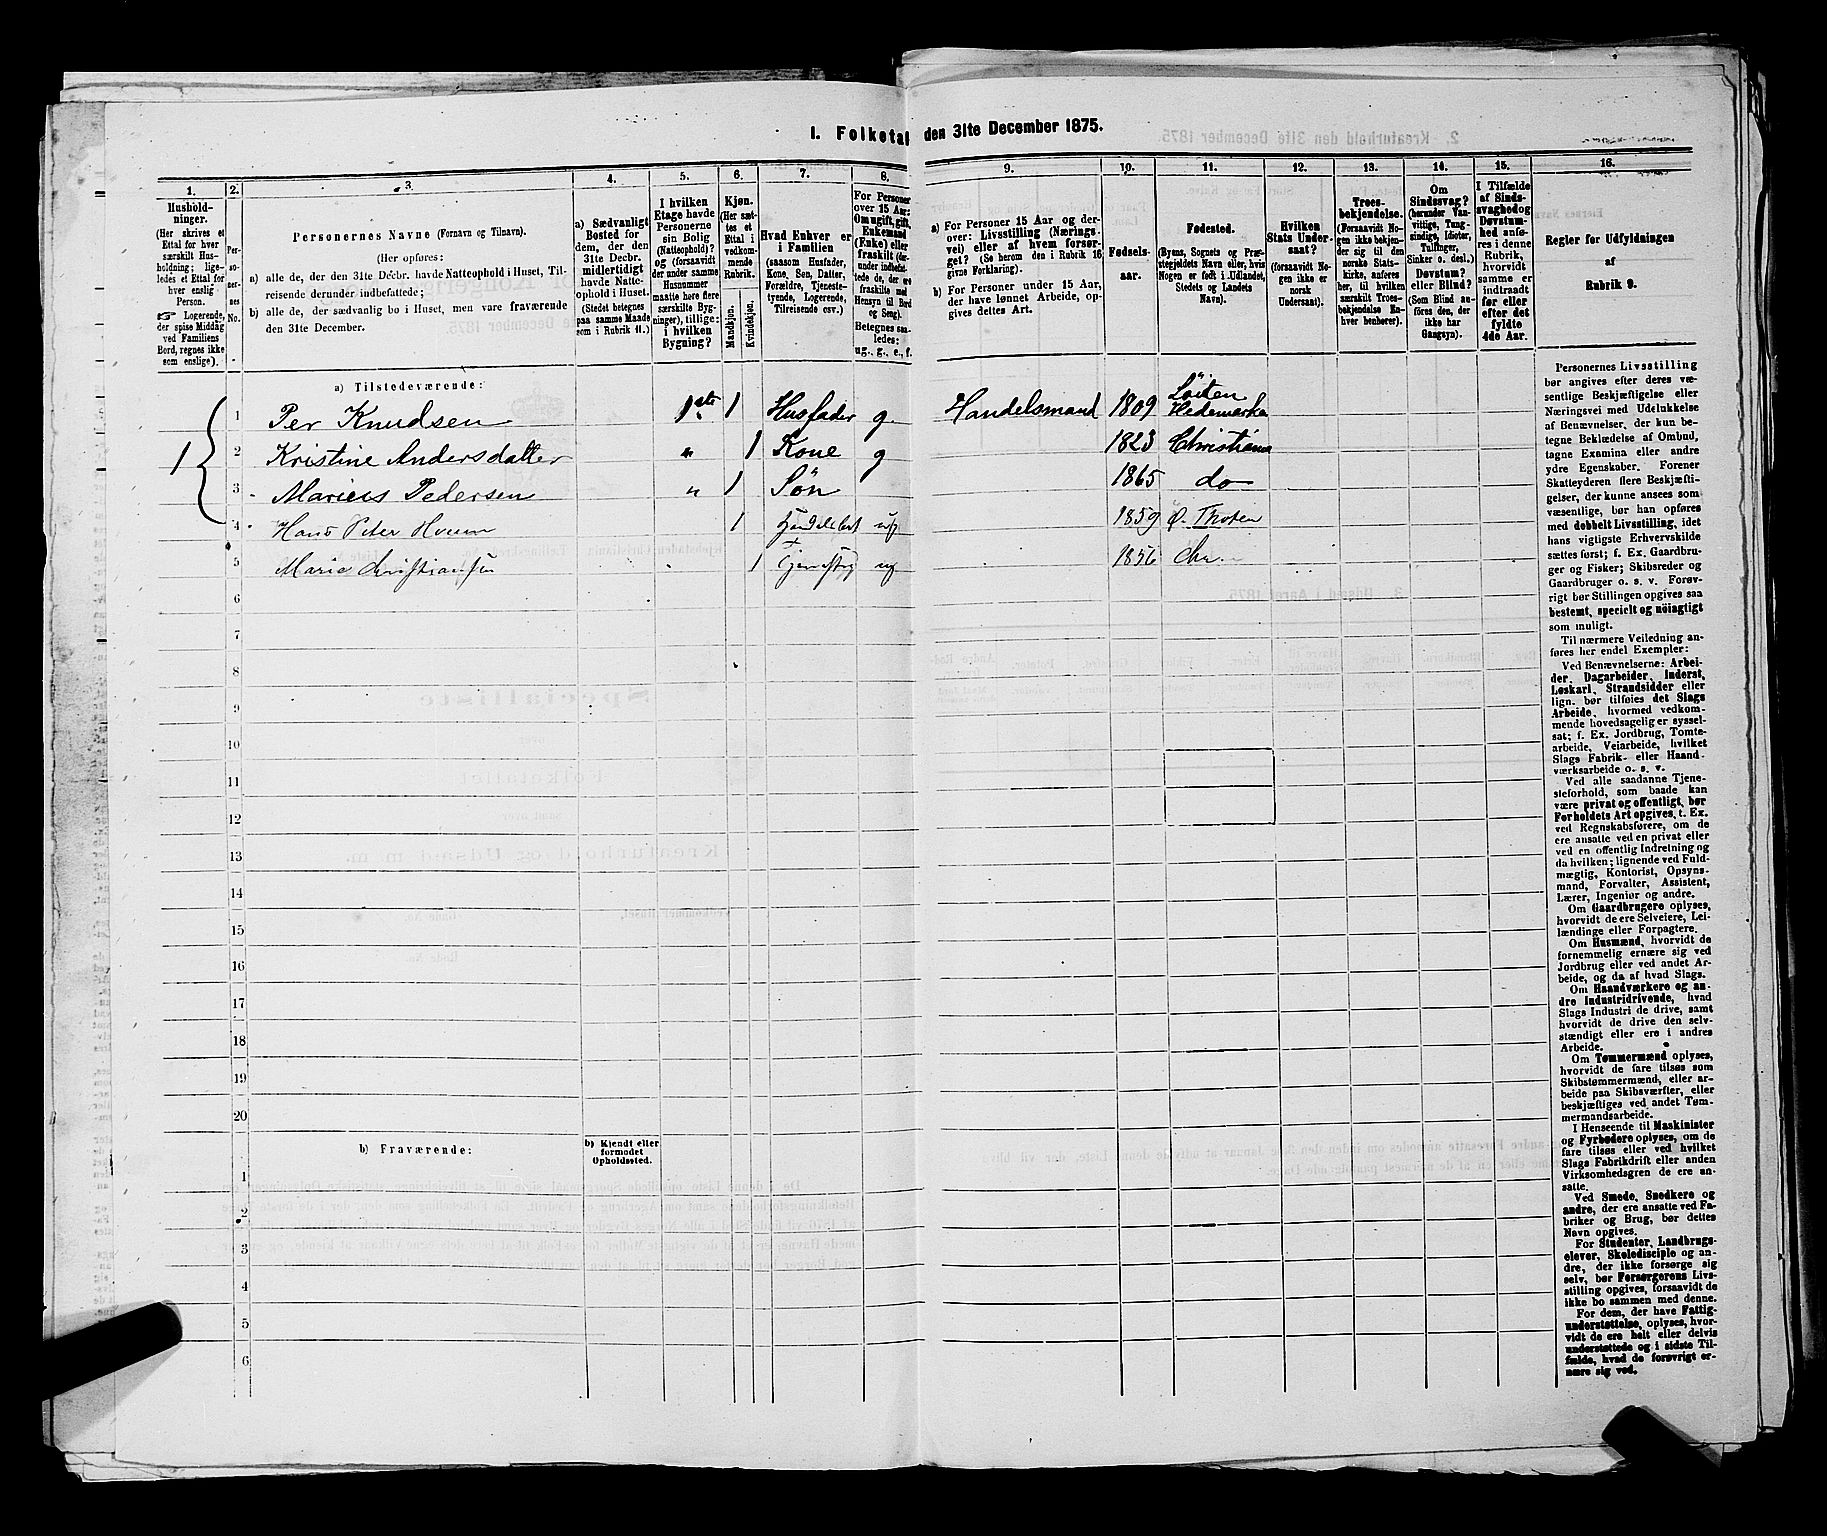 I. Folketal den 31te December 1875.
1. 2. 3. 4. 5. 6. 7. 8. 9. 10. 11. 12. 13. 14. 15. 16.
Hushold-
ninger.
(Her skrives et
Ettal for hver
særskilt Hus-
holdning; lige-
ledes et Ettal for
hver enslig
Person.
☞ Logerende,
der spise Middag
ved Familiens
Bord, regnes ikke
som enslige).
Per-
so-
ner-
nes
No.
Personernes Navne (Fornavn og Tilnavn).
(Her opføres:
a) alle de, der den 31te Decbr. havde Natteophold i Huset, Til-
reisende derunder indbefattede;
b) alle de, der sædvanlig bo i Huset, men vare fraværende
den 31te December.
a) Sædvanligt
Bosted for
dem, der den
31te Decbr.
midlertidigt
havde Natte-
ophold i Huset.
(Stedet betegnes
paa samme Maade
som i Rubrik 11.)
I hvilken
Etage havde
Personerne
sin Bolig
(Natteophold)?
og (forsaavidt
der under samme
Husnummer
maatte høre flere
særskilte Byg-
ninger), tillige:
i hvilken
Bygning?
Kjøn.
(Her sæt-
tes et
Ettal i
vedkom-
mende
Rubrik.
Mandkjøn.
Kvindekjøn.
Hvad Enhver er
i Familien
(saasom Husfader,
Kone, Søn, Datter,
Forældre, Tjeneste-
tyende, Logerende,
Tilreisende osv.)
For Personer
over 15 Aar:
Om ugift, gift,
Enkemand
(Enke) eller
fraskilt
Betegnes saa-
ledes:
ug., g., e., f.
a) For Personer 15 Aar og der-
over: Livsstilling (Nærings-
vei) eller af hvem forsør-
get? (Se herom den i Rubrik 16
givne Forklaring).
b) For Personer under 15 Aar,
der have lønnet Arbeide, op-
gives dettes Art.
Fødsels-
aar.
Fødested.
(Byens, Sognets og Præ-
stegjeldets Navn eller, hvis
Nogen er født i Udlandet,
Stedets og Landets
Navn).
Hvilken
Stats Under-
saat?
(forsaavidt No-
gen ikke er
norsk
Undersaat).
Troes-
bekjendelse.
(Forsaavidt No-
gen ikke bekjen-
der sig til den
norske Stats-
kirke, anføres
her, til hvilken
særskilt Troes-
bekjendelse En-
hver henhører).
Om
Sindssvag?
(herunder Van-
vittige, Tung-
sindige, Idioter,
Tullinger,
Sinker o. desl.)
Døvstum?
eller Blind?
(Som Blind an-
føres den, der
ikke har
Gangsyn).
I Tilfælde
af Sinds-
svaghed og
Døvstum-
hed anfø-
res i denne
Rubrik,
hvorvidt
samme er
indtraadt
før eller
efter det
fyldte
4de Aar.
Regler for Udfyldningen
af
Rubrik 9.
a) Tilstedeværende:
1 Per Knudsen 1ste 1 Husfader g. Handelsmand 1809 Löiten Hedemarken
1
2 Kristine Andersdatter " 1 Kone g 1823 Christiania
3 Marius Pedersen " 1 Søn 1865 do
4 Hans Peter 1 ug 1859 Ø. Thoten
5 Marie Christiansen 1 ug 1856 Chr.
6
7
8
9
10
11
12
13
14
15
16
17
18
19
20
b) Fraværende:
b) Kjendt eller
formodet
Opholdssted.
1
2
3
4
5
6
Personernes Livsstilling
bør angives efter deres væ-
sentlige Beskjæftigelse eller
Næringsvei med Udelukkelse
af Benævnelser, der kun be-
tegne Beklædelse af Ombud,
tagne Examina eller andre
ydre Egenskaber. Forener
Skatteyderen flere Beskjæfti-
gelser, der kunne ansees som
væsentlige, bør han opføres
med dobbelt Livsstilling, idet
hans vigtigste Erhvervskilde
sættes først; f. Ex. Gaardbru-
ger og Fisker; Skibsreder og
Gaardbruger o. s. v. Forøv-
rigt bør Stillingen opgives saa
bestemt, specielt og nöiagtigt
som muligt.
Til nærmere Veiledning an-
føres her endel Exempler:
Ved Benævnelserne: Arbei-
der, Dagarbeider, Inderst,
Løskarl, Strandsidder eller
lign. bør tilføies det Slags
Arbeide, hvormed vedkom-
mende hovedsagelig er syssel-
sat; f. Ex. Jordbrug, Tomte-
arbeide, Veiarbeide, hvilket
Slags Fabrik- eller Haand-
værksarbeide o. s. v.
Ved alle saadanne Tjene-
steforhold, som baade kan
være privat og offentligt, bør
Forholdets Art opgives, t. Ex.
ved Regnskabsførere, om de
ere ansatte ved en privat eller
ved en offentlig Indretning og
da hvilken; lignende ved Fuld-
mægtig, Kontorist, Opsyns-
mand, Forvalter, Assistent,
Lærer, Ingeniør og andre.
Om Gaardbrugere oplyses,
hvorvidt de ere Selveiere, Lei-
lændinge eller Forpagtere.
Om Husmænd, hvorvidt de
fornemmelig ernære sig ved
Jordbrug eller ved andet Ar-
beide, og da af hvad Slags.
Om Haandværkere og an-
dre Industridrivende, hvad
Slags Industri de drive, samt
hvorvidt de drive den selv-
stændigt eller ere i andres
Arbeide.
Om Tømmermænd oplyses,
hvorvidt de fare tilsøs som
Skibstømmermænd, eller ar-
beide paa Skibsværfter, eller
beskjæftiges ved andet Tøm-
mermandsarbeide.
I Henseende til Maskinister
og Fyrbødere oplyses, om de
fare tilsøs eller ved hvilket
Slags Fabrikdrift eller anden
Virksomhedsgren de ere an-
satte.
Ved Smede, Snedkere og
andre, der ere ansatte ved Fa-
briker og Brug, bør dettes
Navn opgives.
For Studenter, Landbrugs-
elever, Skoledisciple og an-
dre, der ikke forsørge sig
selv, bør Forsørgerens Livs-
stilling opgives, forsaavidt de
ikke bo sammen med denne.
For dem, der have Fattig-
understøttelse, oplyses, hvor-
vidt de ere helt eller delvis
understøttede og i sidste Til-
fælde, hvad de forøvrigt er-
nære sig ved.